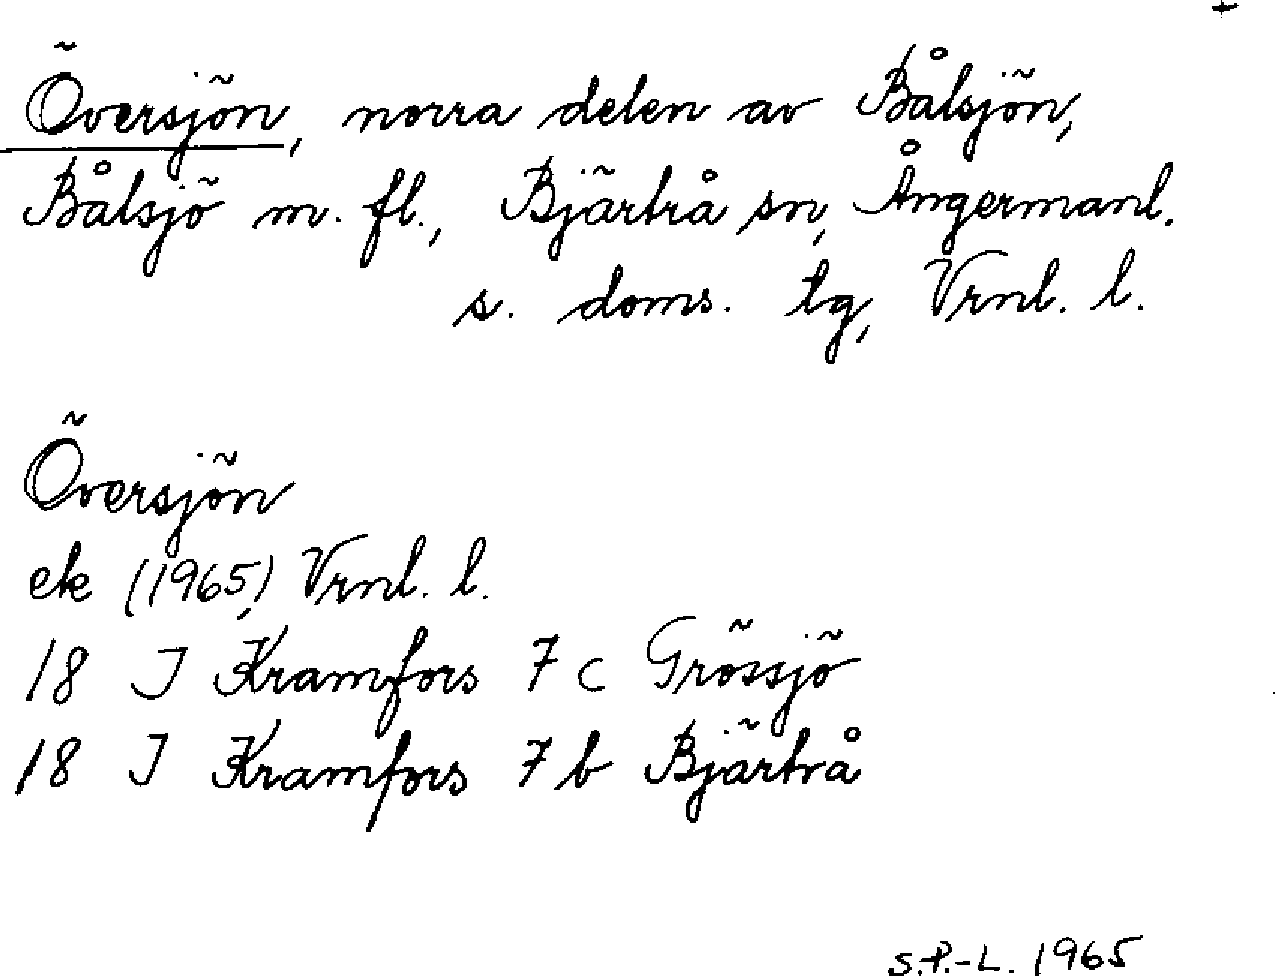 +
Översjön, norra delen av Bålsjön,
Bålsjö m. fl., Bjärtrå sn, Ångermanl.
s. doms. tg, Vrnl. l.
Översjön
ek (1965) Vrnl. l.
18 J Kramfors 7 c Grössjö
18 J Kramfors 7 b Bjärtrå
S.P.-L. 1965